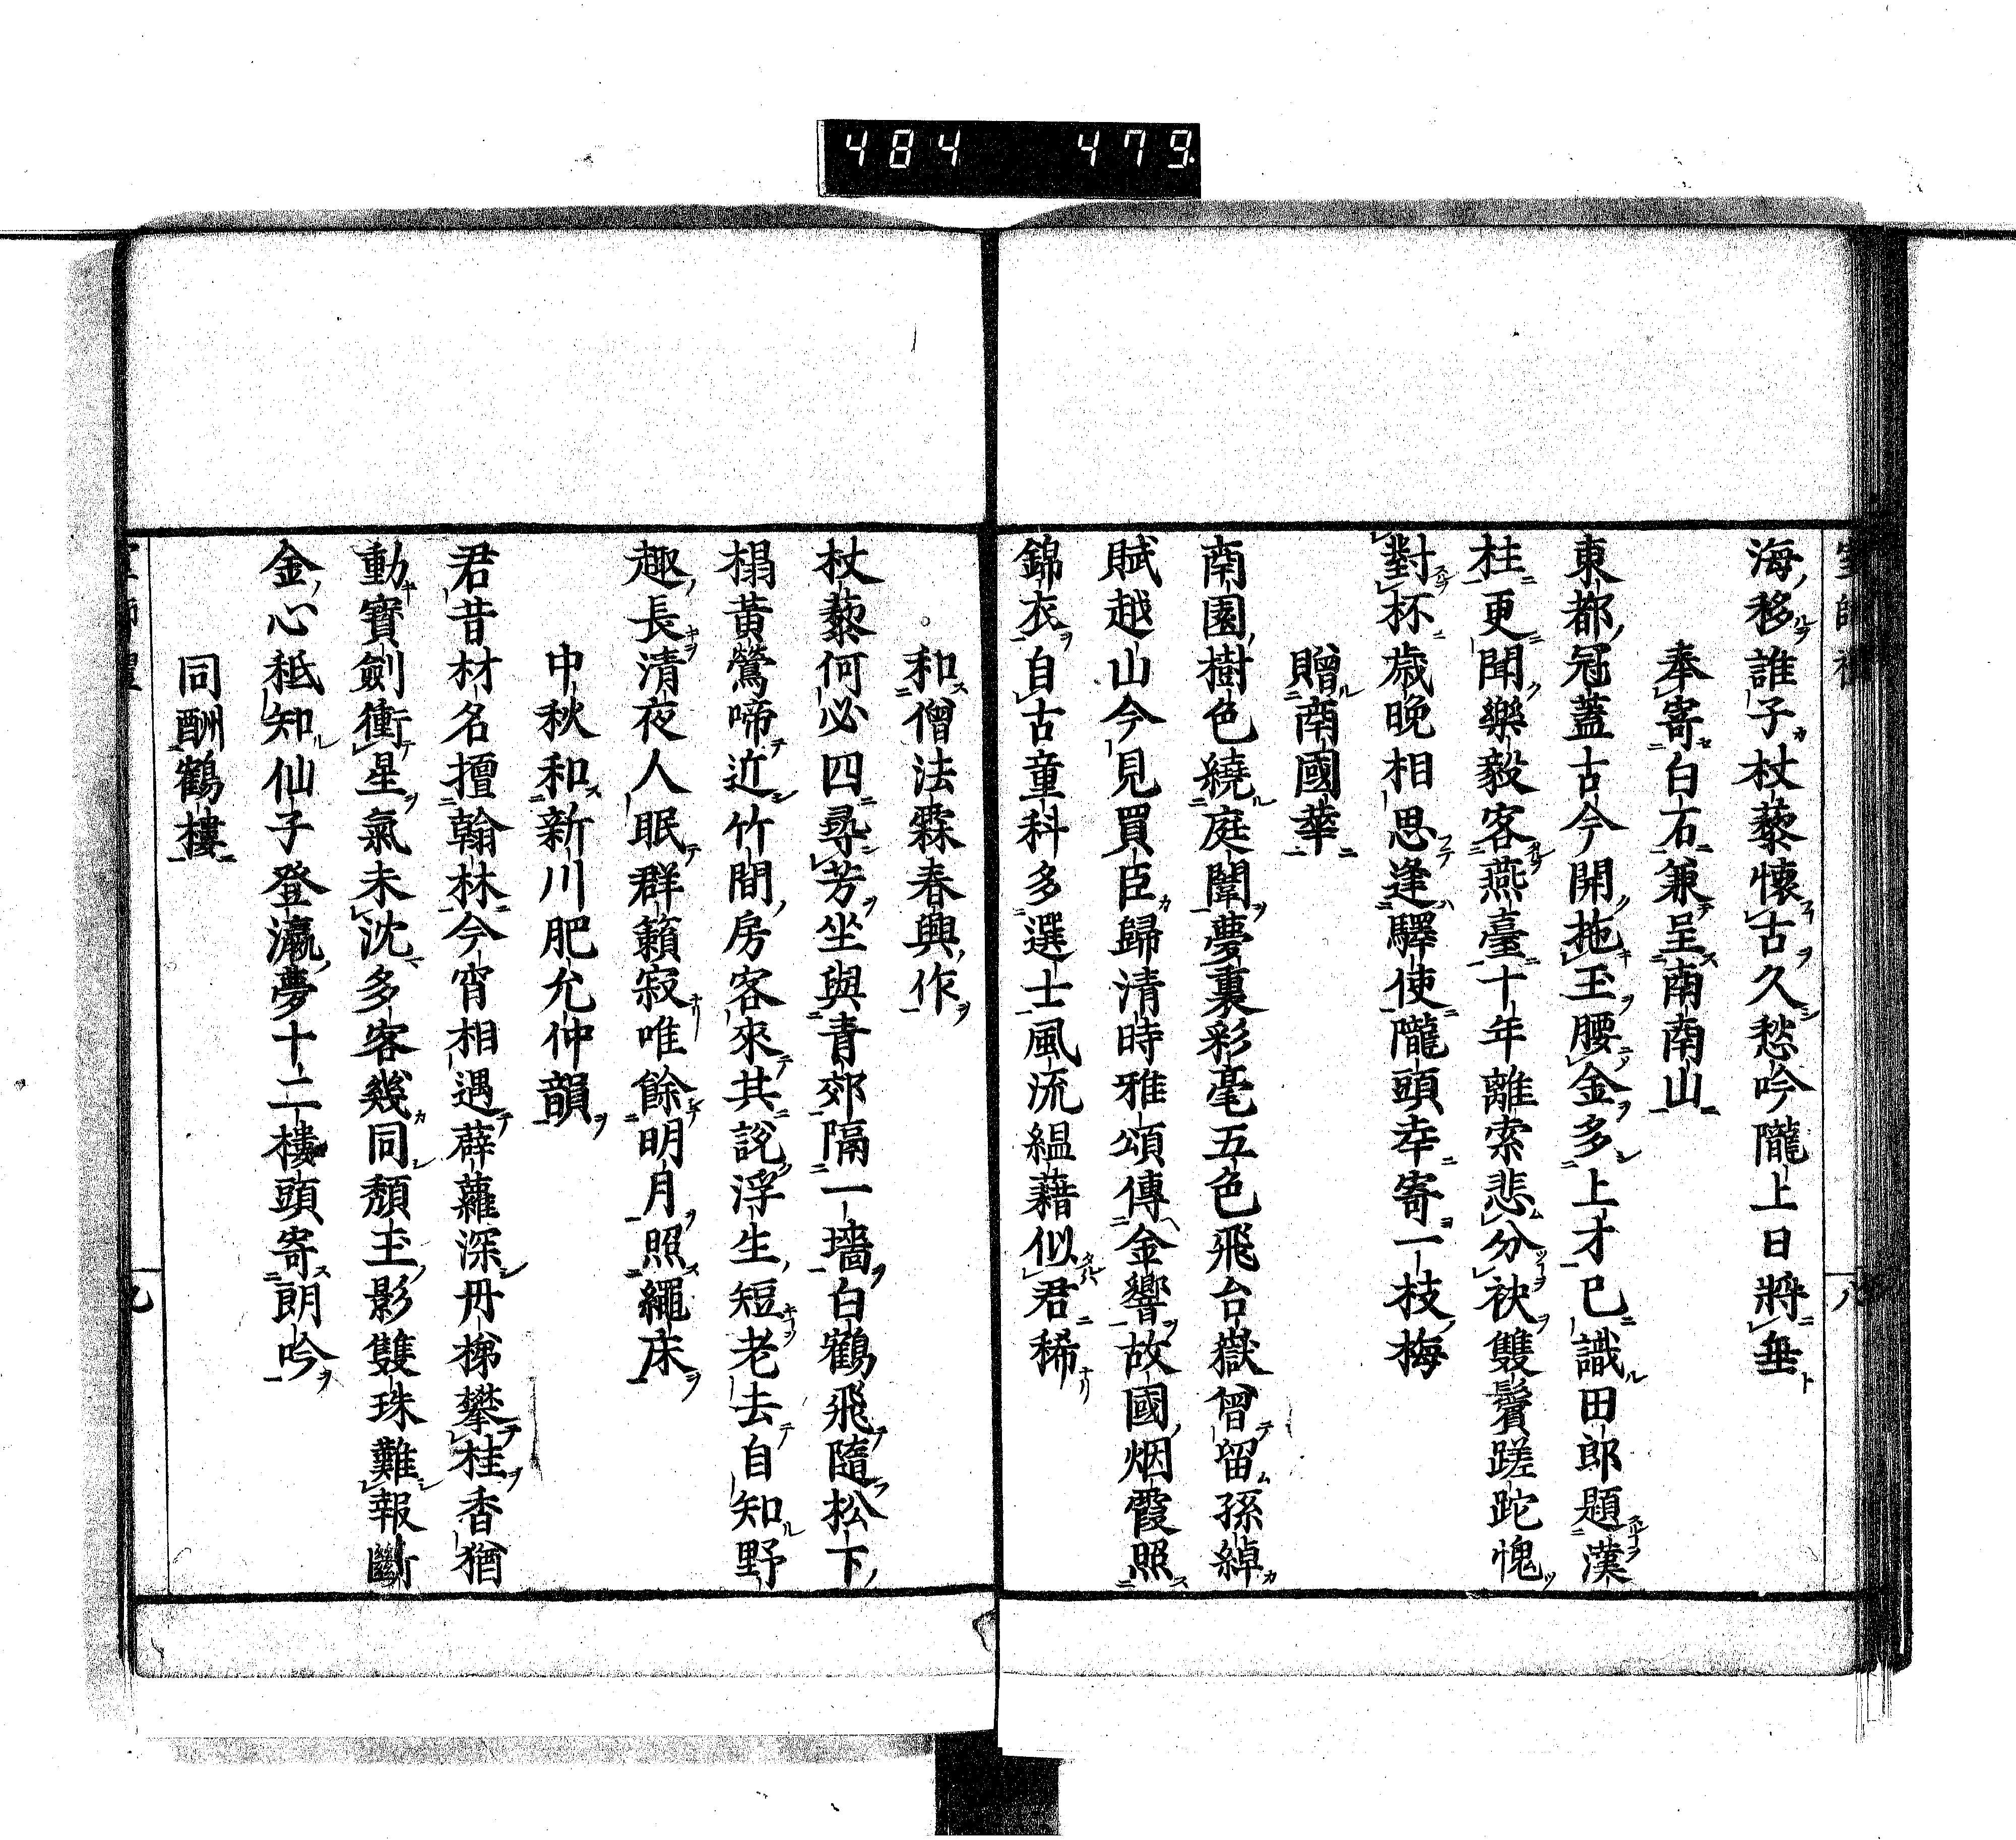 484 479
八
海移誰子杖藜懷古久愁吟隴上日將垂
奉寄白石兼呈南南山
東都冠蓋古今開拖玉腰金多上才已識田郎題漢
柱更聞樂毅客燕臺十年離索悲分袂雙鬢蹉跎愧
對杯歲晚相思逢驛使隴頭幸寄一枝梅
贈南國華
南園樹色繞庭闈夢裏彩毫五色飛台嶽曾留孫綽
賦越山今見買臣歸清時雅頌傳金響故國烟霞照
錦衣自古童科多選士風流縕藉似君稀
和僧法霖春興作
杖藜何必四尋芳坐與青郊隔一墻白鶴飛隨松下
榻黃鶯啼近竹間房客來其說浮生短老去自知野
趣長清夜人眠群籟寂唯餘明月照繩床
中秋和新川肥允仲韻
君昔材名擅翰林今宵相遇薜蘿深丹梯攀桂香猶
動寶劍衝星氣未沈多客幾同頹玉影雙珠難報斷
金心秪知仙子登瀛夢十二樓頭寄朗吟
同酬鶴樓
九